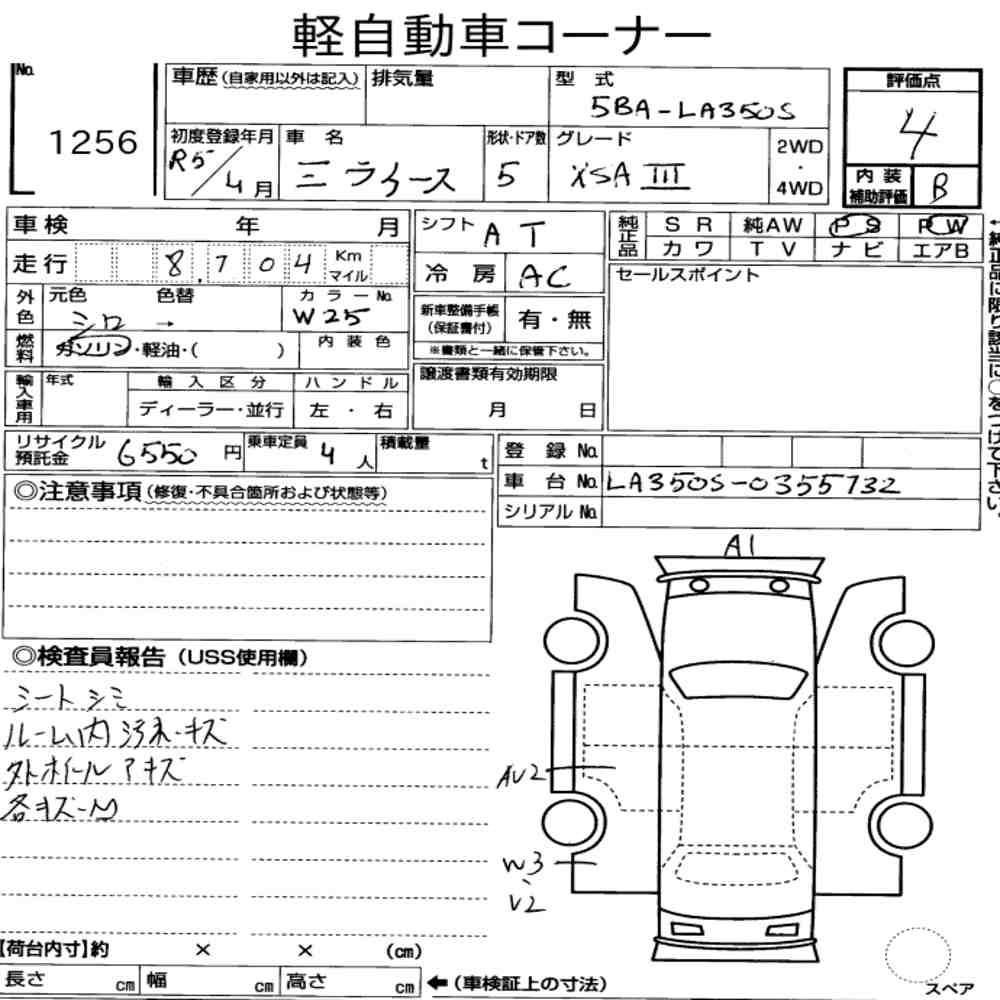 軽自動車コーナー
No. 1256
車歴 (自家用以外は記入)
排気量
型式 5BA-LA350S
評価点 4
初度登録年月 R5/4月
車名 ミライース
形状・ドア数 5
グレード XSAⅢ
2WD・4WD
内装補助評価 B
車検 年 月
シフト AT
純正品 SR 純AW PS PW
カワ TV ナビ エアB
←純正品に限り該当に○をつけて下さい。
走行 8,704 Km マイル
冷房 AC
セールスポイント
外色 元色 シロ 色替 → カラーNo. W25
新車整備手帳(保証書付) 有・無
※書類と一緒に保管下さい。
燃料 ガソリン・軽油・( ) 内装色
輸入車用 年式 輸入区分 ハンドル
ディーラー・並行 左・右
譲渡書類有効期限
月 日
リサイクル預託金 6550円 乗車定員 4人 積載量 t
登録No.
車台No. LA350S-0355732
シリアルNo.
◎注意事項 (修復・不具合箇所および状態等)
A1
◎検査員報告 (USS使用欄)
シートシミ
ルーム内汚れ・キズ
外ホイールアキズ
AV2
W3、V2
【荷台内寸】約 × × (cm)
長さ cm 幅 cm 高さ cm ←(車検証上の寸法)
スペア